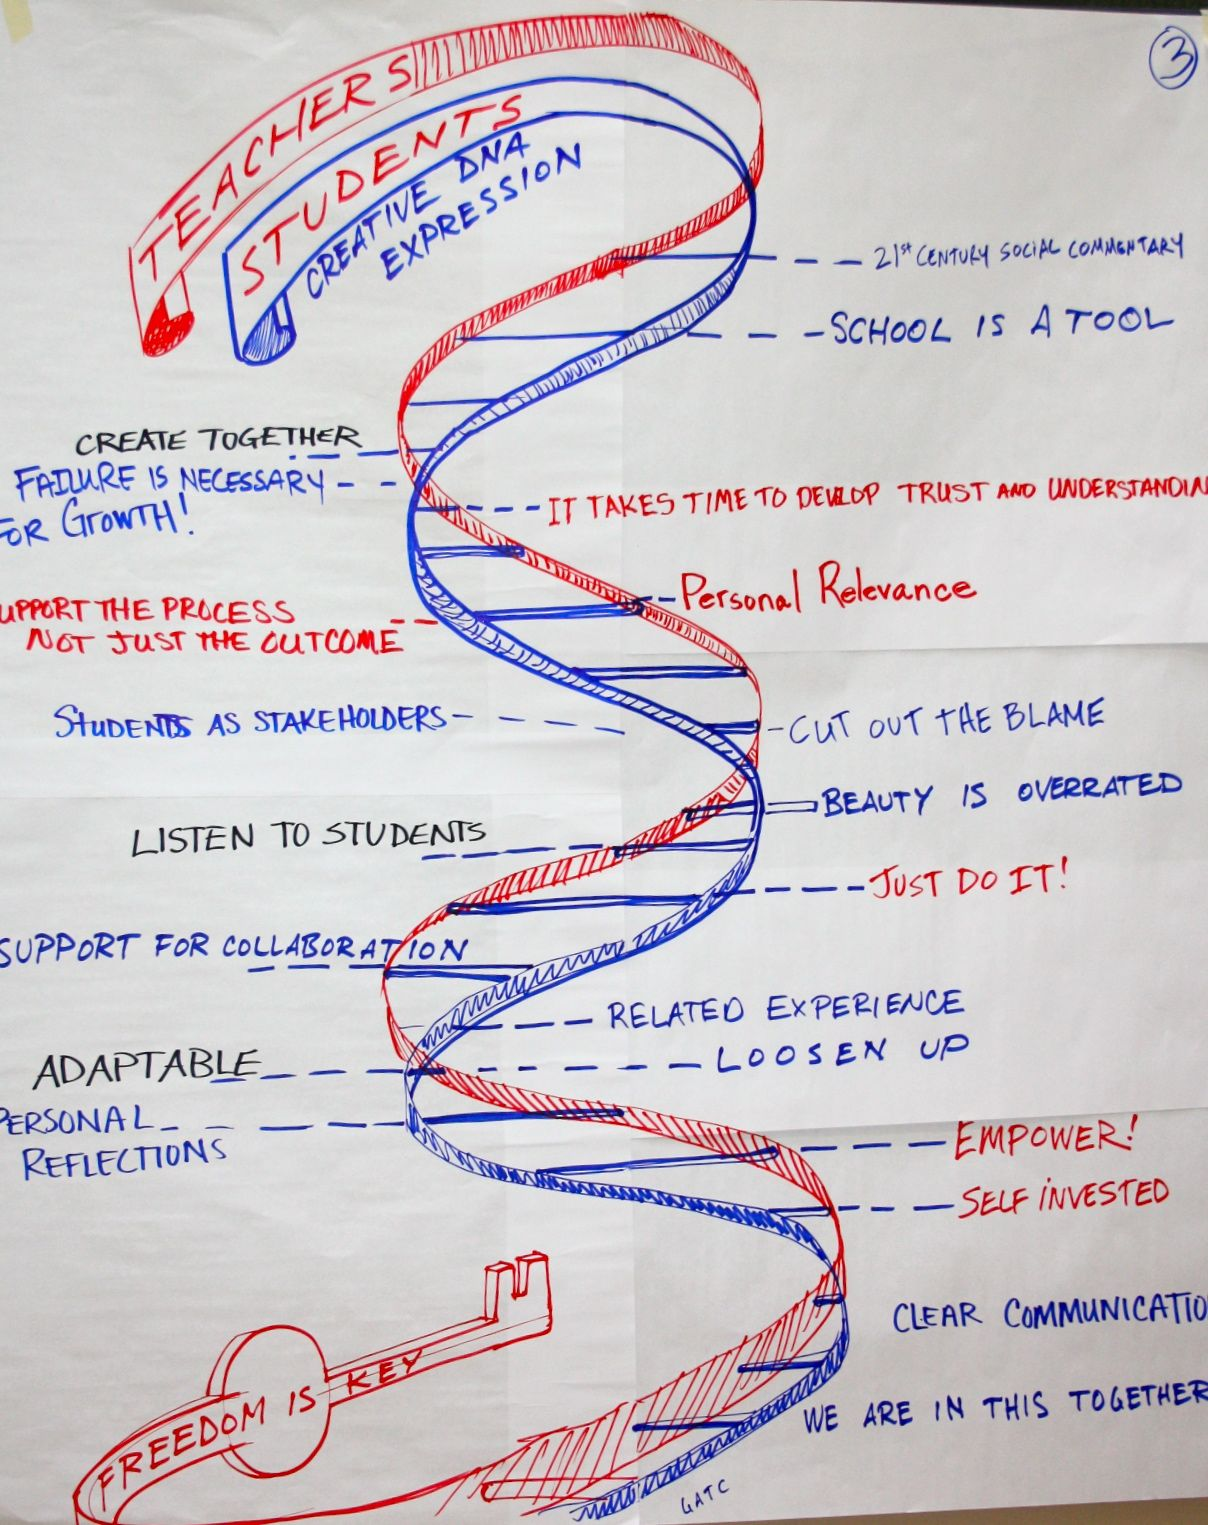 3
TEACHERS
STUDENTS
CREATIVE DNA
EXPRESSION
21st CENTURY SOCIAL COMMENTARY
SCHOOL IS A TOOL
CREATE TOGETHER
FAILURE IS NECESSARY
FOR GROWTH!
IT TAKES TIME TO DEVELOP TRUST AND UNDERSTANDIN
Personal Relevance
UPPORT THE PROCESS
NOT JUST THE OUTCOME
STUDENTS AS STAKEHOLDERS
CUT OUT THE BLAME
BEAUTY IS OVERRATED
LISTEN TO STUDENTS
JUST DO IT!
SUPPORT FOR COLLABORATION
RELATED EXPERIENCE
LOOSEN UP
ADAPTABLE
PERSONAL
REFLECTIONS
EMPOWER!
SELF INVESTED
CLEAR COMMUNICATIO
FREEDOM IS KEY
WE ARE IN THIS TOGETHER
GATC